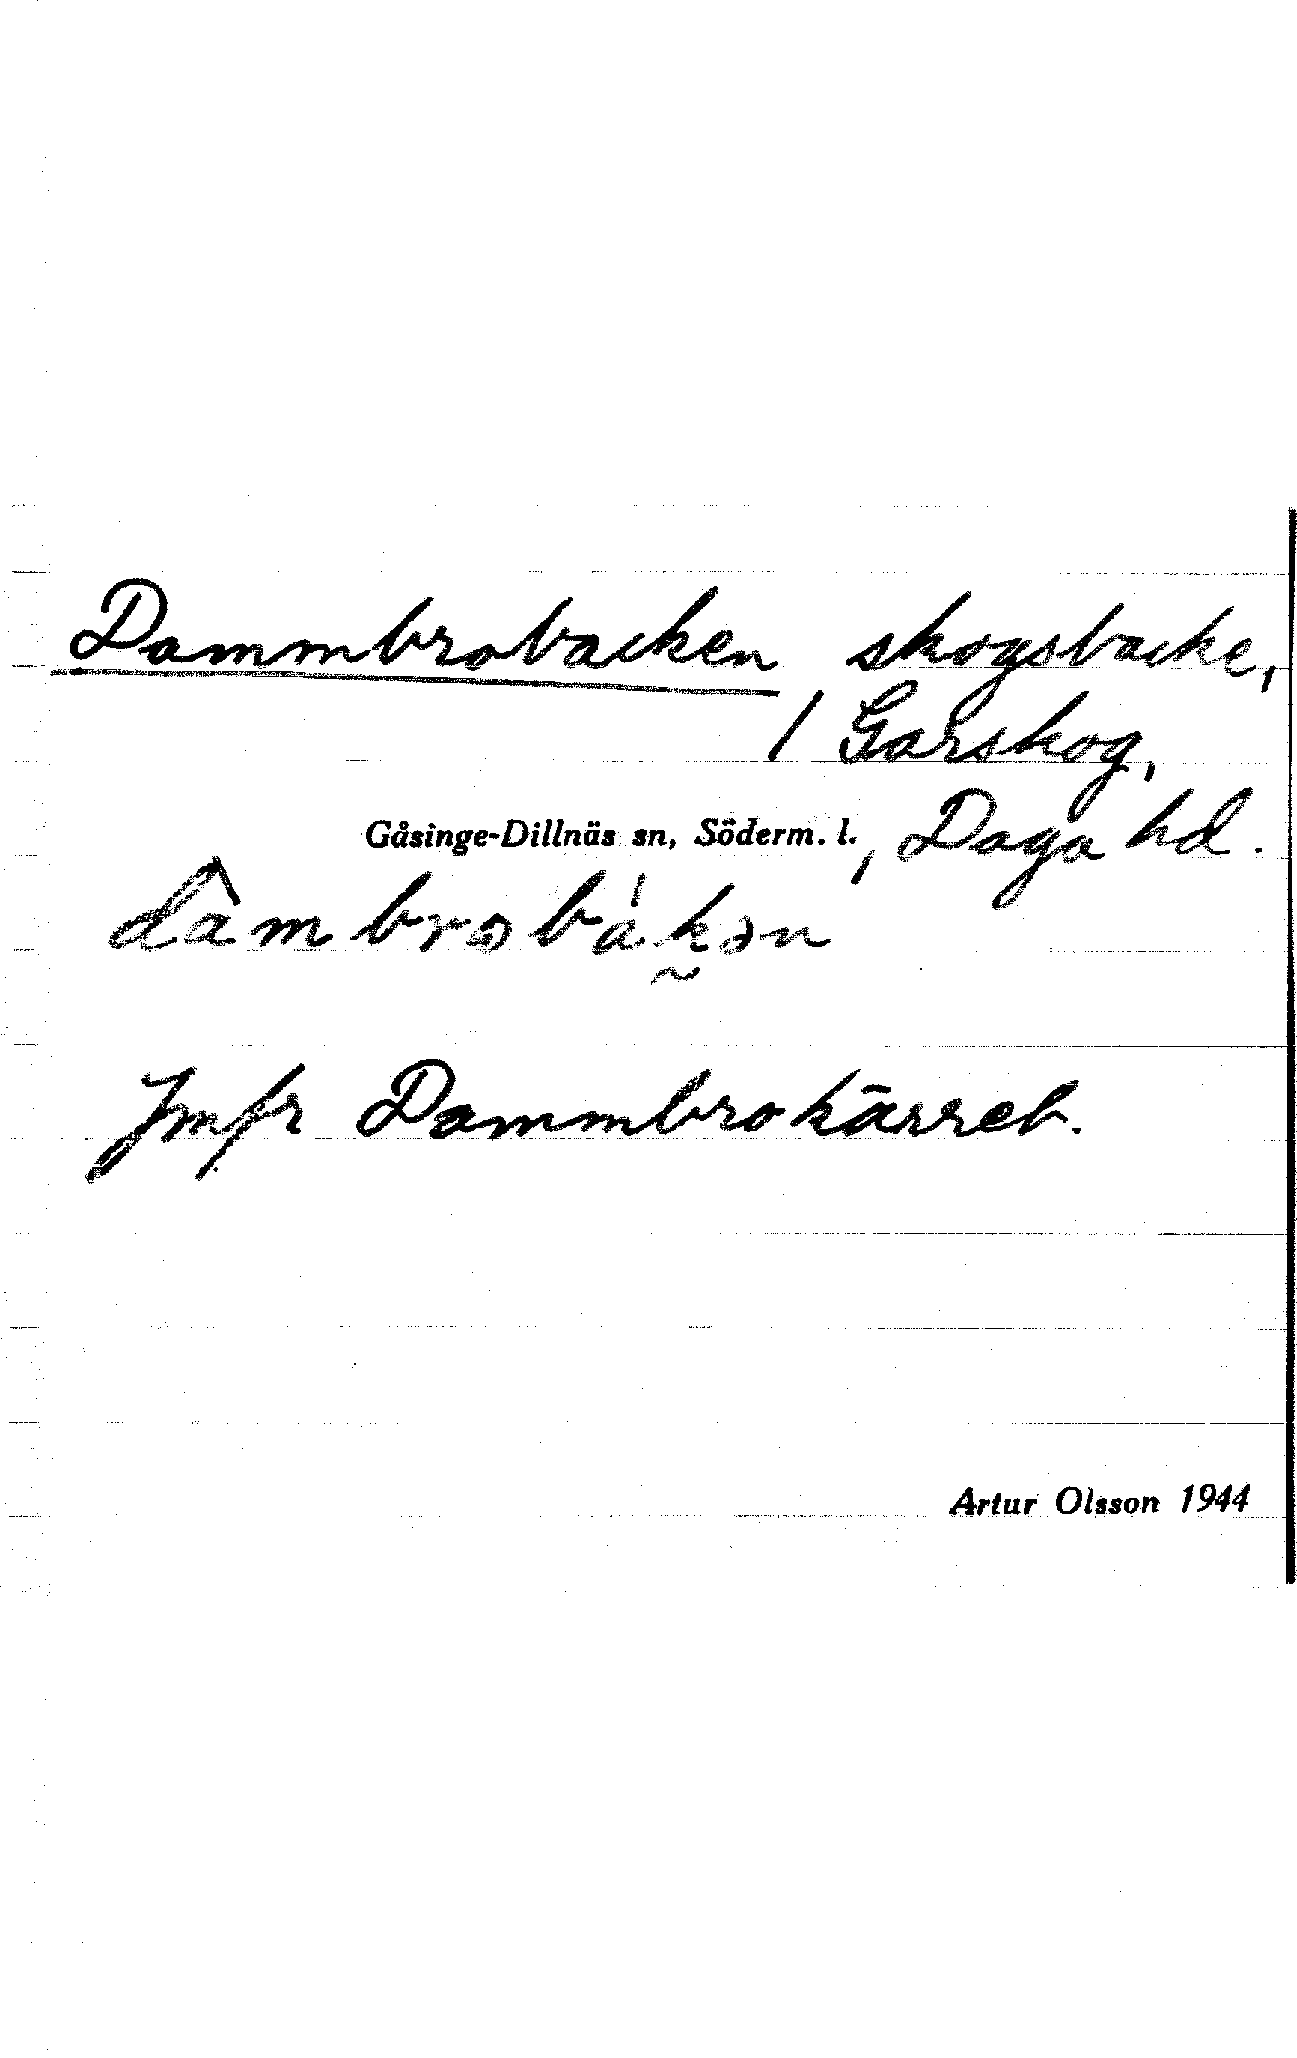 Dammbrobacken skogsbacke,
/ Garskog,
Gåsinge-Dillnäs sn, Söderm. l., Daga hd.
Jmfr Dammbrokärret.
Artur Olsson 1944